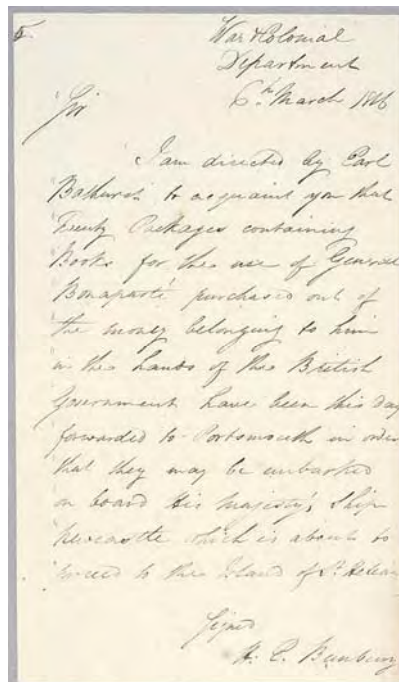 5.
War & Colonial
Department
6th March 1816
Sir
I am directed by Earl
Bathurst to acquaint you that
Twenty Packages containing
Books for the use of General
Bonaparté purchased out of
the money belonging to him
in the hands of the British
Government have been this day
forwarded to Portsmouth in order
that they may be embarked
on board His Majesty's Ship
Newcastle which is about to
proceed to the Island of St Helena
Signed
H. E. Bunbury